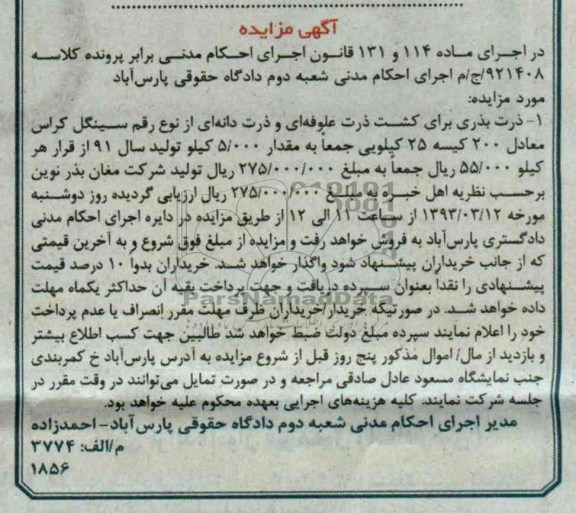 آگهی مزایده
در اجرای ماده ۱۱۴ و ۱۳۱ قانون اجرای احکام مدنی برابر پرونده کلاسه
۹۲۱۴۰۸/ج/م اجرای احکام مدنی شعبه دوم دادگاه حقوقی پارس‌آباد
مورد مزایده:
۱- ذرت بذری برای کشت ذرت علوفه‌ای و ذرت دانه‌ای از نوع رقم سینگل کراس
معادل ۲۰۰ کیسه ۲۵ کیلویی جمعاً به مقدار ۵/۰۰۰ کیلو تولید سال ۹۱ از قرار هر
کیلو ۵۵/۰۰۰ ریال جمعاً به مبلغ ۲۷۵/۰۰۰/۰۰۰ ریال تولید شرکت مغان بذر نوین
برحسب نظریه اهل خبره مبلغ ۲۷۵/۰۰۰/۰۰۰ ریال ارزیابی گردیده روز دوشنبه
مورخه ۱۳۹۳/۰۳/۱۲ از ساعت ۱۱ الی ۱۲ از طریق مزایده در دایره اجرای احکام مدنی
دادگستری پارس‌آباد به فروش خواهد رفت و مزایده از مبلغ فوق شروع و به آخرین قیمتی
که از جانب خریداران پیشنهاد شود واگذار خواهد شد. خریداران بدوا ۱۰ درصد قیمت
پیشنهادی را نقداً بعنوان سپرده دریافت و جهت پرداخت بقیه آن حداکثر یکماه مهلت
ParsNamadData
داده خواهد شد. در صورتیکه خریدار/خریداران ظرف مهلت مقرر انصراف یا عدم پرداخت
خود را اعلام نمایند سپرده مبلغ دولت ضبط خواهد شد طالبین جهت کسب اطلاع بیشتر
و بازدید از مال/ اموال مذکور پنج روز قبل از شروع مزایده به آدرس پارس‌آباد خ کمربندی
جنب نمایشگاه مسعود عادل صادقی مراجعه و در صورت تمایل می‌توانند در وقت مقرر در
جلسه شرکت نمایند. کلیه هزینه‌های اجرایی بعهده محکوم علیه خواهد بود.
مدیر اجرای احکام مدنی شعبه دوم دادگاه حقوقی پارس‌آباد- احمدزاده
م/الف: ۳۷۷۴
۱۸۵۶